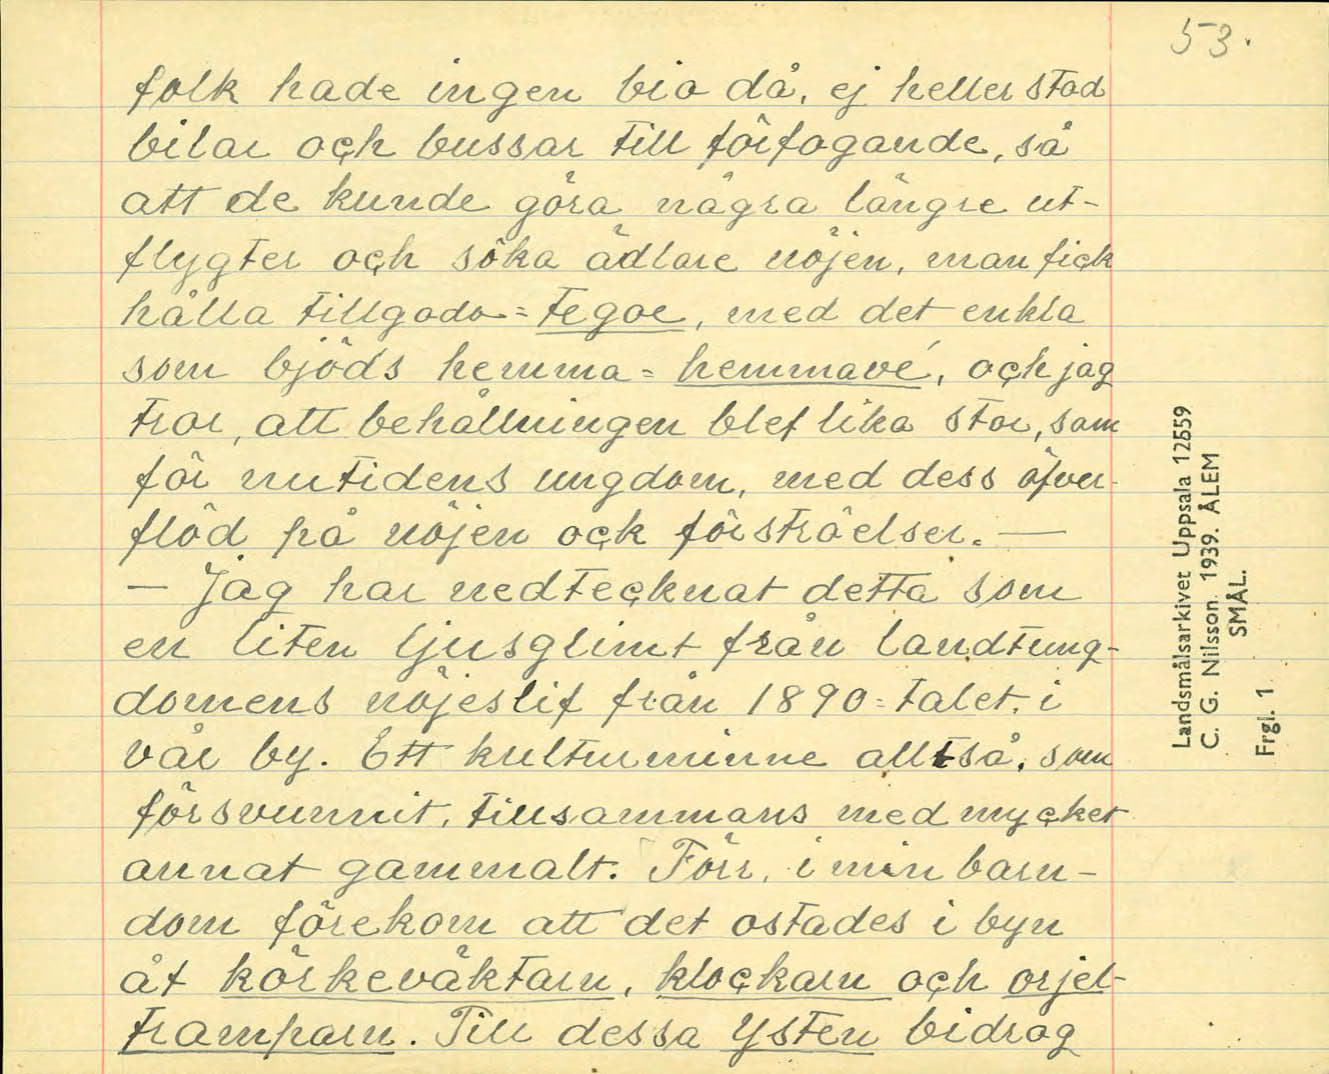 53.
folk hade ingen bio då, ej heller stod
bilar och bussar till förfogande, så
att de kunde göra några längre ut-
flygter och söka ädlare nöjen, man fick
hålla tillgodo = tegoe, med det enkla
som bjöds hemma = hemmavé, och jag
tror, att behållningen blef lika stor, som
för nutidens ungdom, med dess öfver-
flöd på nöjen ock förströelser. —
— Jag har nedtecknat detta som
en liten ljusglimt från landtung-
domens nöjeslif från 1890=talet, i
vår by. Ett kulturminne alltså, som
försvunnit, tillsammans med mycket
annat gammalt. Förr, i min barn-
dom förekom att det ostades i byn
åt körkeväktarn, klockarn och orjel-
tramparn. Till dessa ysten bidrog
Landsmålsarkivet Uppsala 12659
C. G. Nilsson. 1939. ÅLEM
SMÅL.
Frgl. 1